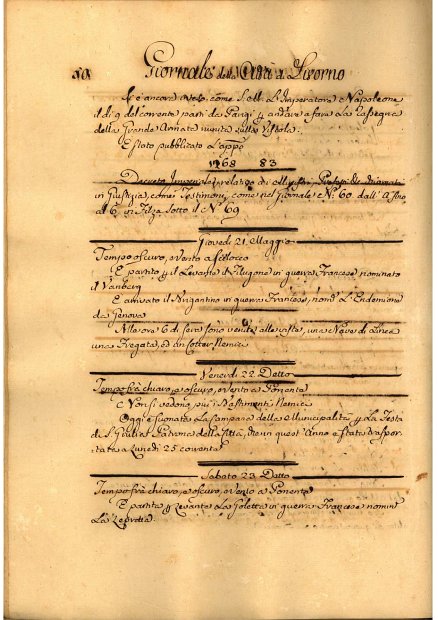 Giornale della Città di Livorno
Si è ancora come S. M. L'Imperatore Napoleone
il dì 9 del corrente partì da Parigi p andare a fare la rassegna
della Grande Armata riunita sulla Vistola.
È stato pubblicato l'app.º
1768 83
Decreto relativo ai
in Giustizia, come Testimoni, come nel Giornale Nº 60 dall' Anno
al 6 in Filza Sotto il Nº 69
Giovedì 21 Maggio
Tempo oscuro, e vento a Scilocco
È partito p il Levante il Filugone in guerra Francese nominato
il
È arrivato il Brigantino in guerra Francese, nomº L'Endemione
da Genova
Alle ore 6 di sera sono venute alle viste, una Nave di Linea
una Fregata, ed un Cotter Nemici
Venerdì 22 Detto
Tempo frà chiaro, e oscuro, e vento a Ponente
e Non si vedono più i Bastimenti Nemici
Oggi è fumata la Campana della Municipalità p la Festa
di S. Giulia Patrona della Città, che in quest' Anno è stata traspor
tata a Lunedì 25 corrente
Sabato 23 Detto
Tempo frà chiaro, e oscuro, e Vento a Ponente
È partita p Levante la Goletta in guerra Francese nomin
La